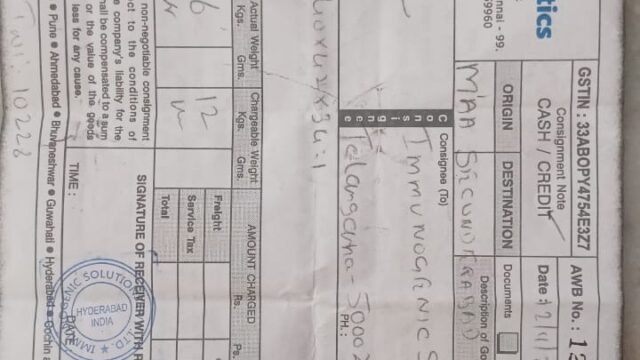 tics
nnai - 99.
9960
GSTIN : 33ABOPY4754E3Z7
Consignment Note
CASH / CREDIT
AWB No. : 1
ORIGIN
DESTINATION
Date :
MAA
Documents
Description of Go
Consignee (To)
IMMUNOGENIC S
Telangana - 5000
PH. :
40x42x34:1
Actual Weight
Kgs. Gms.
Chargeable Weight
Kgs. Gms.
AMOUNT CHARGED
Rs. Ps.
6
12
Freight
Service Tax
Total
non-negotiable consignment
ct to the conditions of
e company's liability for the
hall be compensated to a sum
or the value of the goods
less for any cause.
SIGNATURE OF RECEIVER WITH R
TIME :
DATE
HYDERABAD
INDIA
● Pune ● Ahmedabad ● Bhuvaneshwar ● Guwahati ● Hyderabad ● Cochin
10228